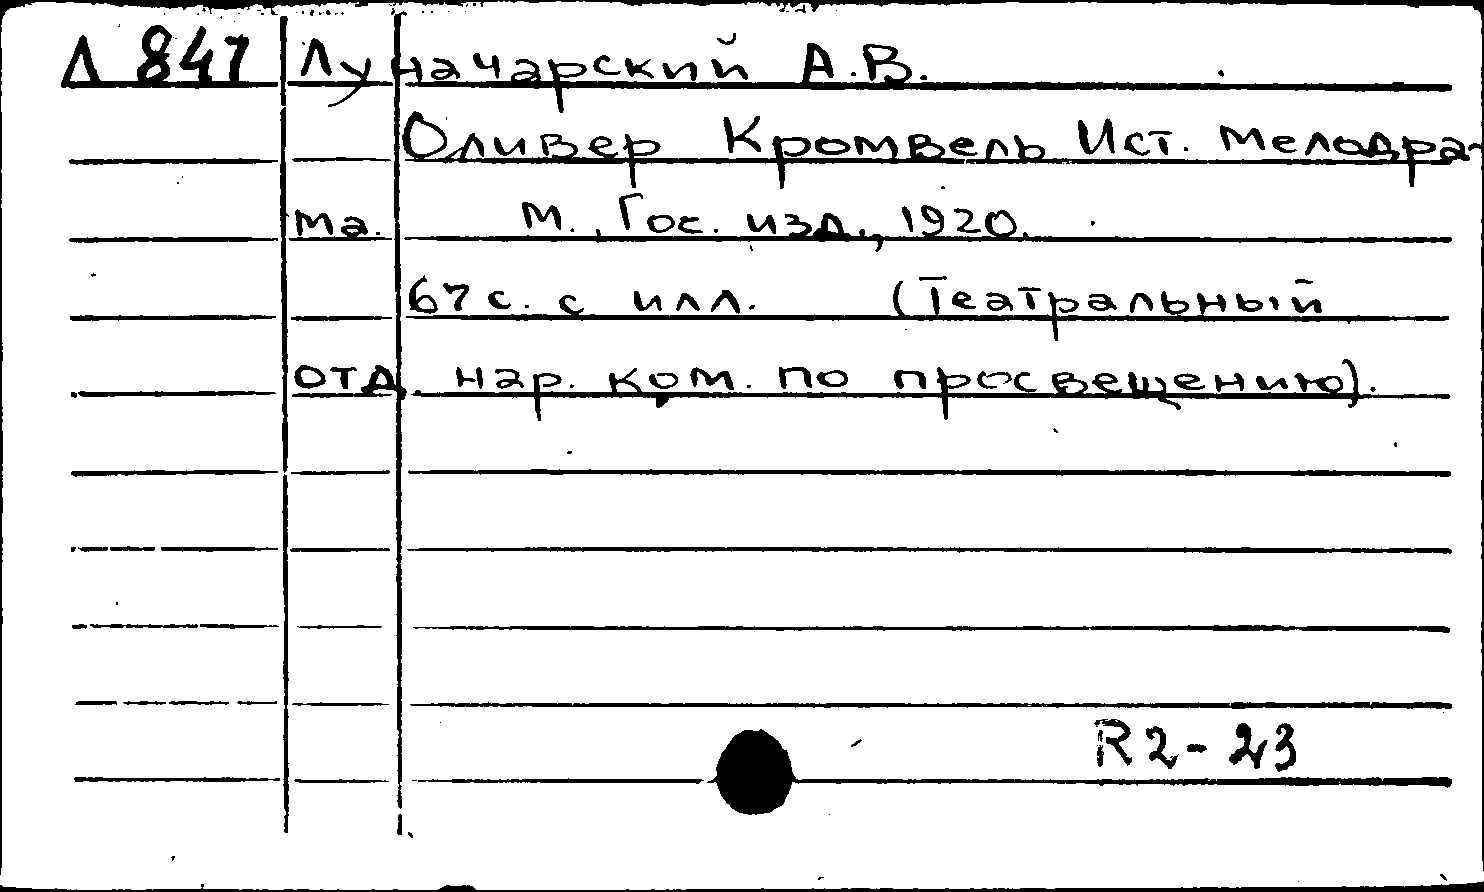 Л 847 Луначарский А.В.
Оливер Кромвель Ист. мелодра-
ма. М., Гос. изд., 1920.
67 с. с илл. (Театральный
отд. нар. ком. по просвещению).
R2-23